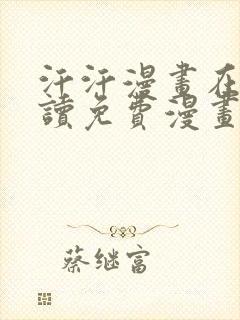 汗汗漫畫在
讀免費漫畫
蔡继富